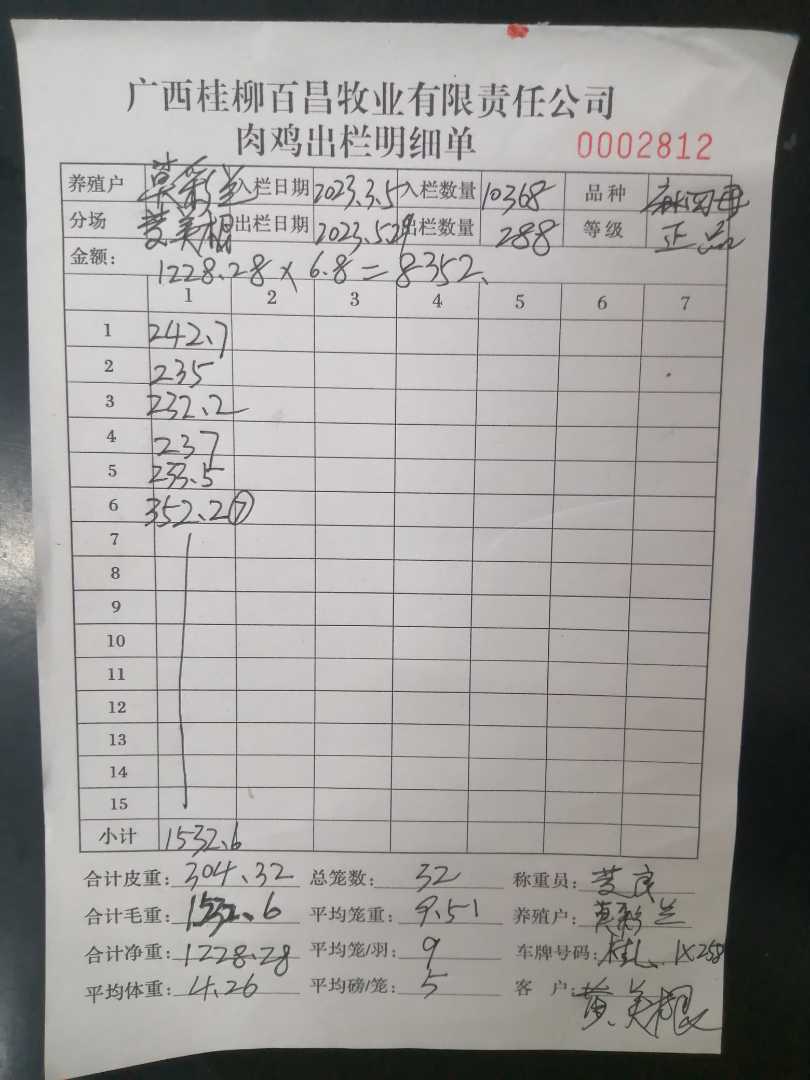 广西桂柳百昌牧业有限责任公司
肉鸡出栏明细单 0002812
养殖户 莫彩兰 入栏日期 2023.3.5 入栏数量 10368 品种
分场 黄美根 出栏日期 2023.5.29 出栏数量 288 等级 正品
金额: 1228.28 x 6.8 = 8352.
1 2 3 4 5 6 7
1 242.7
2 235
3 232.2
4 237
5 233.5
6 352.2 ⑦
7
8
9
10
11
12
13
14
15
小计 1532.6
合计皮重: 304.32 总笼数: 32 称重员:
合计毛重: 1532.6 平均笼重: 9.51 养殖户: 莫彩兰
合计净重: 1228.28 平均笼/羽: 9 车牌号码: 桂 1X258
平均体重: 4.26 平均磅/笼: 5 客户: 黄美根